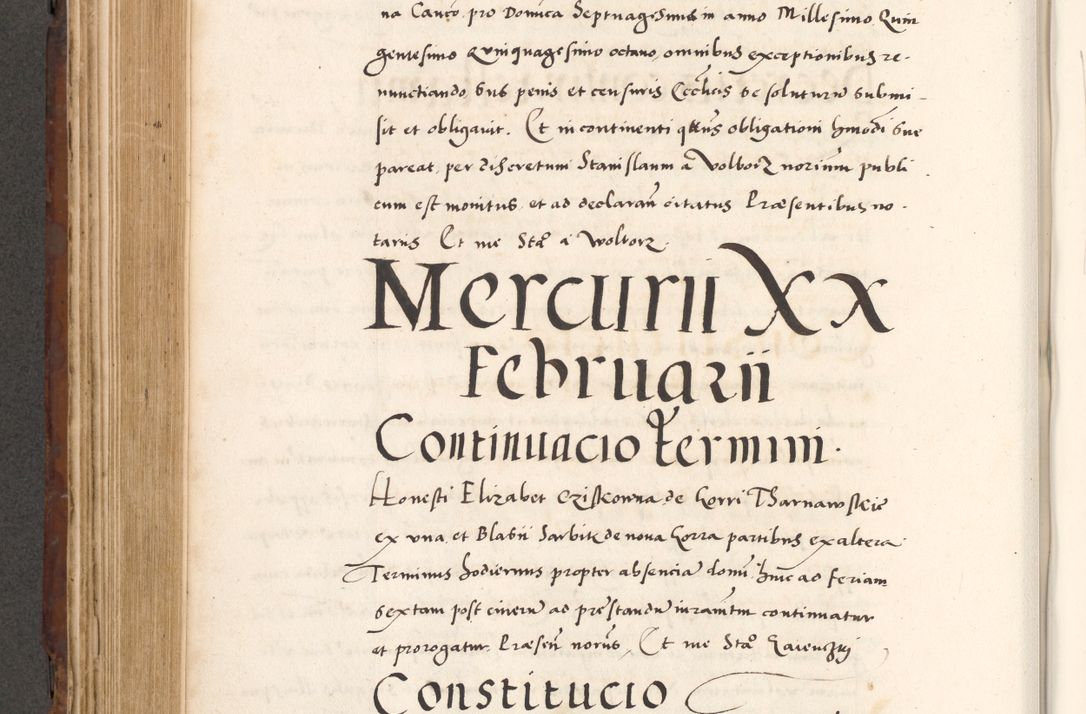 na Canco. pro Domica Septuagesimis in anno Millesimo Quin
gentesimo Quinquagesimo octavo, omnibus exceptionibus re-
nunctiando, sus penis et censuris Ecclicis se soluturu submi-
sit et obligavit. Et in continenti obligationi hmodi sue
pareat, per discretum Stanislaum a Wolborz norium publi
cum est monitus et ad declaran citatus Praesentibus no-
tariis Et me Sta a Wolborz.
Mercurii XX
Februarii
Continuacio termini.
Honesti Elizabet de horri Tharnawskie
ex una, et Blasii Sarbik de nova horra partibus ex altera
Terminus hodiernus propter absencia domi hinc ad feriam
sextam post cineru ad prestandu iuramtm continuatur
et prorogatur. Praesen norus, Et me Sta
Constitucio